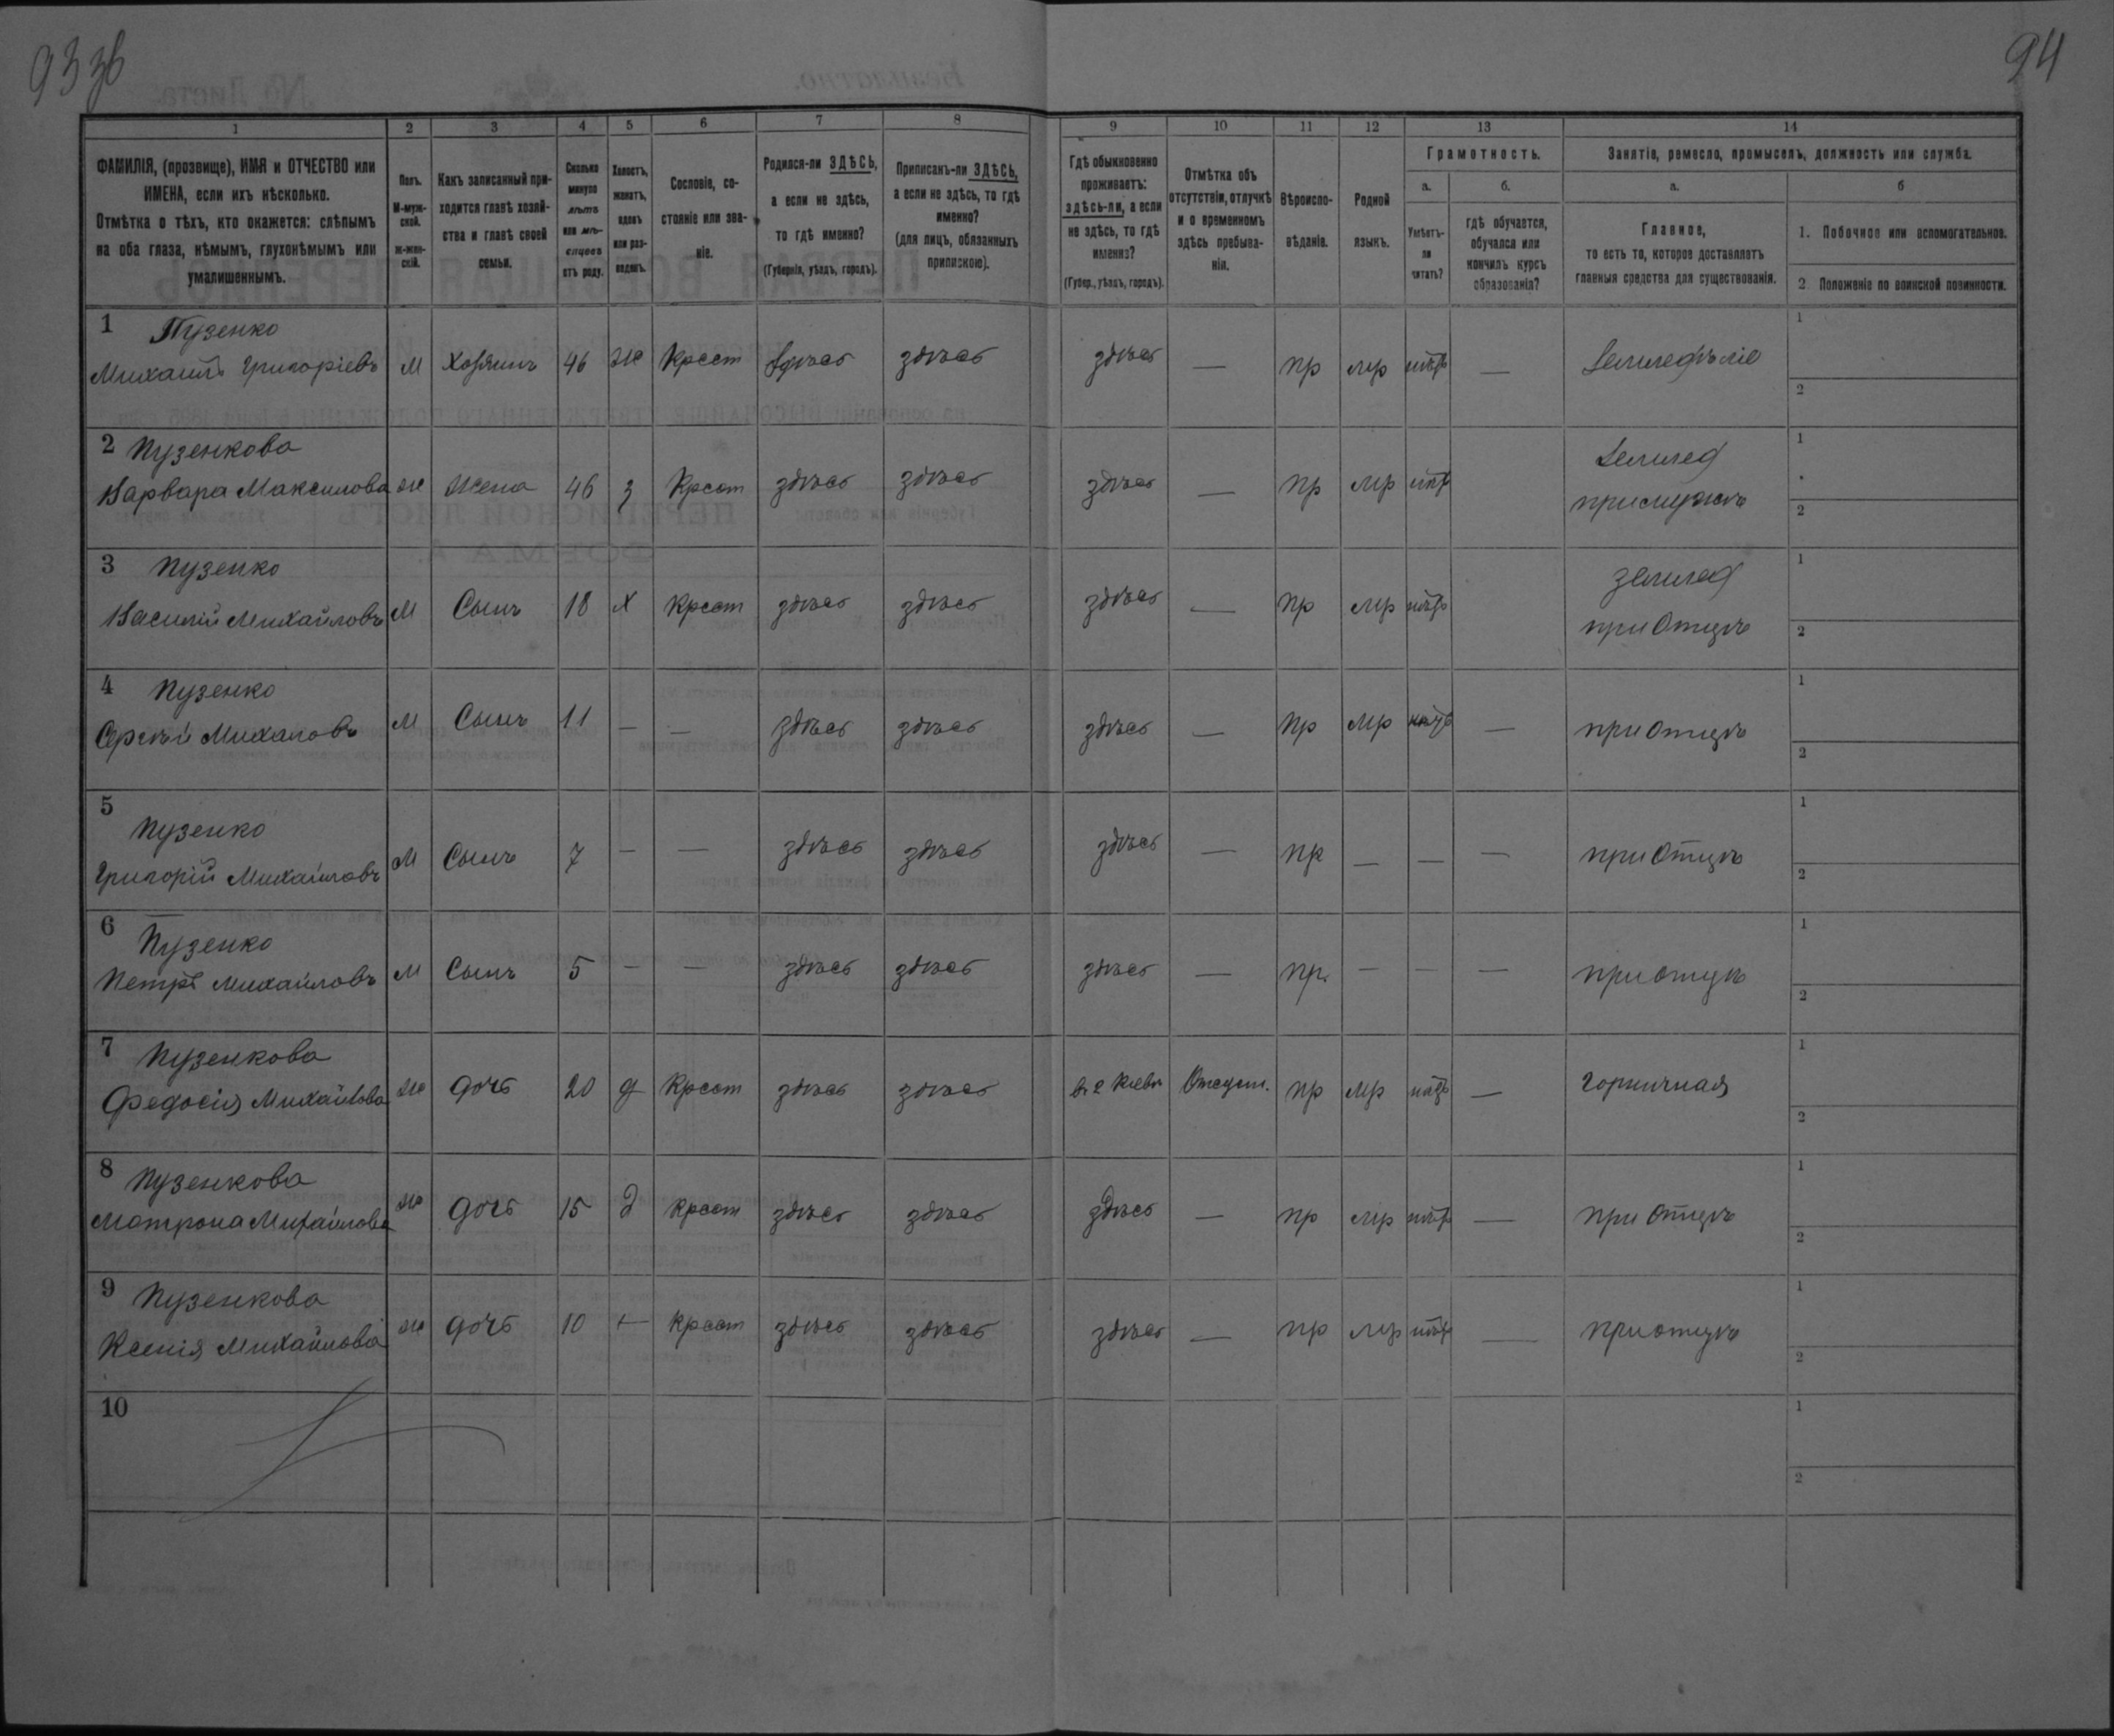 93 зв
94
1 2 3 4 5 6 7 8 9 10 11 12 13 14
ФАМИЛІЯ, (прозвище), ИМЯ и ОТЧЕСТВО или ИМЕНА, если ихъ нѣсколько.
Отмѣтка о тѣхъ, кто окажется: слѣпымъ на оба глаза, нѣмымъ, глухонѣмымъ или умалишеннымъ.
Полъ. М-мужской. ж-женскій.
Какъ записанный приходится главѣ хозяйства и главѣ своей семьи.
Сколько минуло лѣтъ или мѣсяцевъ отъ роду.
Холостъ, женатъ, вдовъ или разведенъ.
Сословіе, состояніе или званіе.
Родился-ли ЗДѢСЬ, а если не здѣсь, то гдѣ именно? (Губернія, уѣздъ, городъ).
Приписанъ-ли ЗДѢСЬ, а если не здѣсь, то гдѣ именно? (для лицъ, обязанныхъ припискою).
Гдѣ обыкновенно проживаетъ: здѣсь-ли, а если не здѣсь, то гдѣ именно? (Губер., уѣздъ, городъ).
Отмѣтка объ отсутствіи, отлучкѣ и о временномъ здѣсь пребываніи.
Вѣроисповѣданіе.
Родной языкъ.
Грамотность.
а. Умѣетъ-ли читать?
б. гдѣ обучается, обучался или кончилъ курсъ образованія?
Занятіе, ремесло, промыселъ, должность или служба.
а. Главное, то есть то, которое доставляетъ главныя средства для существованія.
б
1. Побочное или вспомогательное.
2. Положеніе по воинской повинности.
1 Пузенко
Михаилъ Григоріевъ М Хозяинъ 46 ж Крест здѣсь здѣсь здѣсь — пр мр нѣтъ — Земледѣліе 1 2
2 Пузенкова Землед
Варвара Максимова ж Жена 46 з Крест здѣсь здѣсь здѣсь — пр мр нѣтъ при мужѣ 1 2
3 Пузенко землед
Василій Михайловъ М Сынъ 18 х Крест здѣсь здѣсь здѣсь — пр мр нѣтъ при Отцѣ 1 2
4 Пузенко
Сергѣй Михаловъ М Сынъ 11 — — здѣсь здѣсь здѣсь — пр мр нѣтъ — при отцѣ 1 2
5 Пузенко
Григорій Михайловъ М Сынъ 7 — — здѣсь здѣсь здѣсь — пр — — — при Отцѣ 1 2
6 Пузенко
Петръ Михайловъ М Сынъ 5 — — здѣсь здѣсь здѣсь — пр. — — — при отцѣ 1 2
7 Пузенкова
Федосія Михайлова ж дочь 20 д Крест здѣсь здѣсь в г Кіевѣ Отсутст. пр мр нѣтъ — горничная 1 2
8 Пузенкова
Матрона Михайлова ж дочь 15 д Крест здѣсь здѣсь здѣсь — пр мр нѣтъ — при Отцѣ 1 2
9 Пузенкова
Ксенія Михайлова ж дочь 10 — Крест здѣсь здѣсь здѣсь — пр мр нѣтъ — при отцѣ 1 2
10 1 2